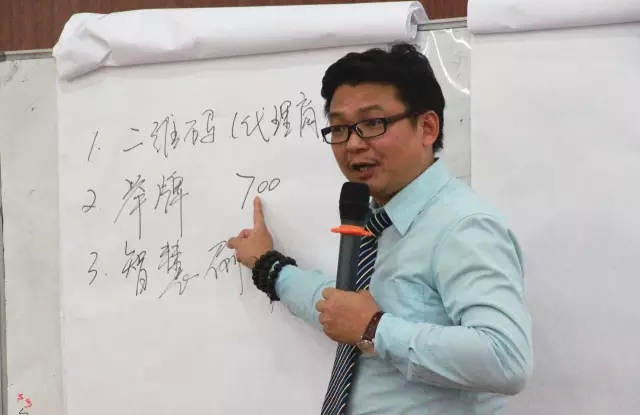 1. 二维码 (代理商
2. 举牌 700
3. 智慧